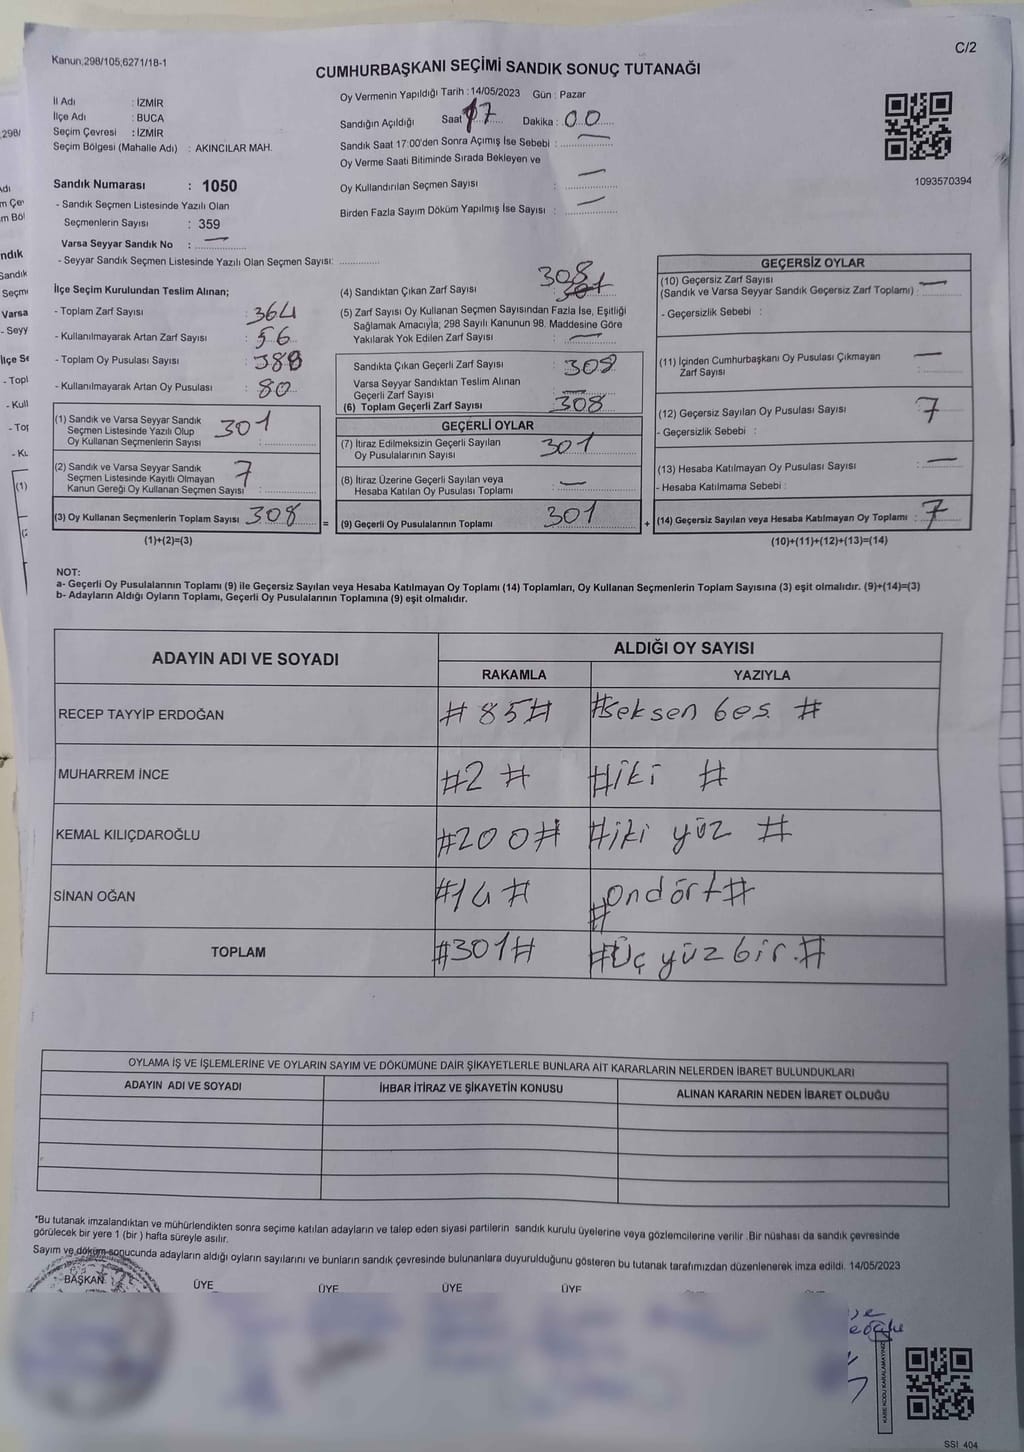 C/2
Kanun.298/105;6271/18-1
CUMHURBAŞKANI SEÇİMİ SANDIK SONUÇ TUTANAĞI
İl Adı : İZMİR
İlçe Adı : BUCA
Seçim Çevresi : İZMİR
Seçim Bölgesi (Mahalle Adı) : AKINCILAR MAH.
Oy Vermenin Yapıldığı Tarih : 14/05/2023 Gün : Pazar
Sandığın Açıldığı Saat 17 Dakika : 00
Sandık Saat 17:00'den Sonra Açımış İse Sebebi : —
Oy Verme Saati Bitiminde Sırada Bekleyen ve
Oy Kullandırılan Seçmen Sayısı : —
Birden Fazla Sayım Döküm Yapılmış İse Sayısı : —
1093570394
Sandık Numarası : 1050
- Sandık Seçmen Listesinde Yazılı Olan
Seçmenlerin Sayısı : 359
Varsa Seyyar Sandık No : —
- Seyyar Sandık Seçmen Listesinde Yazılı Olan Seçmen Sayısı: ..............
İlçe Seçim Kurulundan Teslim Alınan;
- Toplam Zarf Sayısı : 364
- Kullanılmayarak Artan Zarf Sayısı : 56
- Toplam Oy Pusulası Sayısı : 388
- Kullanılmayarak Artan Oy Pusulası : 80
(1) Sandık ve Varsa Seyyar Sandık
Seçmen Listesinde Yazılı Olup
Oy Kullanan Seçmenlerin Sayısı : 301
(2) Sandık ve Varsa Seyyar Sandık
Seçmen Listesinde Kayıtlı Olmayan
Kanun Gereği Oy Kullanan Seçmen Sayısı : 7
(3) Oy Kullanan Seçmenlerin Toplam Sayısı : 308
(1)+(2)=(3)
=
(4) Sandıktan Çıkan Zarf Sayısı 308 301
(5) Zarf Sayısı Oy Kullanan Seçmen Sayısından Fazla İse, Eşitliği
Sağlamak Amacıyla; 298 Sayılı Kanunun 98. Maddesine Göre
Yakılarak Yok Edilen Zarf Sayısı : —
Sandıkta Çıkan Geçerli Zarf Sayısı 308
Varsa Seyyar Sandıktan Teslim Alınan
Geçerli Zarf Sayısı : —
(6) Toplam Geçerli Zarf Sayısı 308
GEÇERLİ OYLAR
(7) İtiraz Edilmeksizin Geçerli Sayılan
Oy Pusulalarının Sayısı 301
(8) İtiraz Üzerine Geçerli Sayılan veya
Hesaba Katılan Oy Pusulası Toplamı —
(9) Geçerli Oy Pusulalarının Toplamı 301
+
GEÇERSİZ OYLAR
(10) Geçersiz Zarf Sayısı —
(Sandık ve Varsa Seyyar Sandık Geçersiz Zarf Toplamı) :
- Geçersizlik Sebebi :
(11) İçinden Cumhurbaşkanı Oy Pusulası Çıkmayan
Zarf Sayısı : —
(12) Geçersiz Sayılan Oy Pusulası Sayısı : 7
- Geçersizlik Sebebi :
(13) Hesaba Katılmayan Oy Pusulası Sayısı : —
- Hesaba Katılmama Sebebi :
(14) Geçersiz Sayılan veya Hesaba Katılmayan Oy Toplamı : 7
(10)+(11)+(12)+(13)=(14)
NOT:
a- Geçerli Oy Pusulalarının Toplamı (9) ile Geçersiz Sayılan veya Hesaba Katılmayan Oy Toplamı (14) Toplamları, Oy Kullanan Seçmenlerin Toplam Sayısına (3) eşit olmalıdır. (9)+(14)=(3)
b- Adayların Aldığı Oyların Toplamı, Geçerli Oy Pusulalarının Toplamına (9) eşit olmalıdır.
ADAYIN ADI VE SOYADI ALDIĞI OY SAYISI
RAKAMLA YAZIYLA
RECEP TAYYİP ERDOĞAN #85# #seksen beş #
MUHARREM İNCE #2# #iki #
KEMAL KILIÇDAROĞLU #200# #iki yüz #
SİNAN OĞAN #14# #ondört#
TOPLAM #301# #Üç yüz bir.#
OYLAMA İŞ VE İŞLEMLERİNE VE OYLARIN SAYIM VE DÖKÜMÜNE DAİR ŞİKAYETLERLE BUNLARA AİT KARARLARIN NELERDEN İBARET BULUNDUKLARI
ADAYIN ADI VE SOYADI İHBAR İTİRAZ VE ŞİKAYETİN KONUSU ALINAN KARARIN NEDEN İBARET OLDUĞU
*Bu tutanak imzalandıktan ve mühürlendikten sonra seçime katılan adayların ve talep eden siyasi partilerin sandık kurulu üyelerine veya gözlemcilerine verilir .Bir nüshası da sandık çevresinde
görülecek bir yere 1 (bir ) hafta süreyle asılır.
Sayım ve döküm sonucunda adayların aldığı oyların sayılarını ve bunların sandık çevresinde bulunanlara duyurulduğunu gösteren bu tutanak tarafımızdan düzenlenerek imza edildi. 14/05/2023
BAŞKAN ÜYE ÜYE ÜYE ÜYE
KARE KODU KARALAMAYINIZ
SSI 404